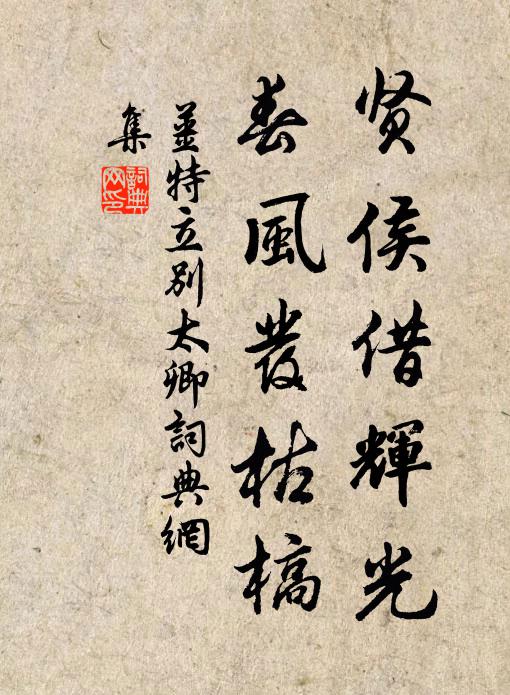 贤侯借輝光
春風發枯槁
姜特立別太卿詞典網
集
詞典
网印